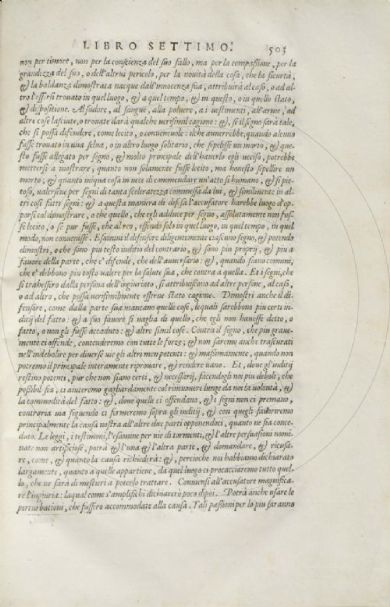 LIBRO SETTIMO. 503
non per timore, non per la conscienza del suo fallo, ma per la compassione, per la
grandezza del suo, o dell'altrui pericolo, per la novità della cosa, che la sicurtà,
& la baldanza dimostrata nacque dall'innocenza sua, attribuirà al caso, o ad al-
tro l'essersi trovato in quel luogo, & a quel tempo, & in questo, o in quello stato,
& dispositione. Al sudore, al sangue, alla polvere, a i vestimenti, all'arme, ad
altre cose lasciate, o trovate darà qualche verisimil cagione: & se il segno sarà tale,
che si possa difendere, come lecito, o convenevole: il che averrebbe, quando alcuno
fusse trovato in una selva, o in altro luogo solitario, che sepelisse un morto, & que-
sto fusse allegato per segno, & molto principale dell'haverlo egli ucciso, potrebbe
mettersi a mostrare, quanto non solamente fusse lecito, ma honesto sepellire un
morto, & quanto iniqua cosa in vece di commendare un'atto sì humano, & sì pie-
toso, valersene per segni di tanta sceleratezza commessa da lui, & similmente in al-
tri così fatti segni: & a questa maniera di difesa l'accusatore harebbe luogo d'op-
porsi col dimostrare, o che quello, che egli adduce per segno, assolutamente non fus-
se lecito, o se pur fusse, che almen, essendo solo in quel luogo, in quel tempo, in quel
modo, non convenisse. Esamini il difensore diligentemente ciascuno segno, & potendo
dimostri, o che sono più tosto inditio del contrario, & sono più proprij, & più a
favore della parte, che e' difende, che dell'aversario: & quando siano communi,
che e' debbono più tosto valere per la salute sua, che contra a quella. Et i segni, che
si trahessero dalla persona dell'ingiuriato, si attribuiscano ad altre persone, al caso,
o ad altro, che possa verisimilmente esserne stato cagione. Dimostri anche il di-
fensore, come dalla parte sua mancano quelle cose, le quali sarebbono più certi in-
dicij del fatto: & a suo favore si vaglia di quello, che egli non havesse detto, o
fatto, o non gli fusse accaduto: & altre simil cose. Contra il segno, che più grave-
mente ci offende, contenderemo con tutte le forze; & non saremo anche trascurati
nell'indebolire per diverse vie gli altri men potenti: & massimamente, quando non
potremo il principale interamente riprovare, & rendere vano. Et, dove gl'inditij
restino potenti, pur che non siano certi, & necessarij, facendogli noi più deboli, che
possibil sia, ci aiuteremo gagliardamente col rimuovere lunge da noi la volontà, &
la commodità del fatto: &, dove quelle ci offendano, & i segni non ci premano,
contraria via seguendo ci fermeremo sopra gl'inditij, & con quegli fauoriremo
principalmente la causa nostra all'altre due parti opponendoci, quanto ne sia conce-
duto. Le leggi, i testimoni, l'esamine per vie di tormenti, & l'altre persuasioni nomi-
nate non artificiose, potrà & l'una & l'altra parte, & domandare, & ricusa-
re, come, & quanto la causa richiederà: &, percioche noi habbiamo dichiarato
largamente, quanto a quelle appartiene, da quel luogo ci procacciaremo tutto quel-
lo, che ne sarà di mestieri a poterlo trattare. Conviensi all'accusatore magnifica-
re l'ingiuria: la qual come s'amplifichi dichiareremo poco dipoi. Potrà anche usare le
perturbationi, che fussero accommodate alla causa. Tali passioni per lo più saranno